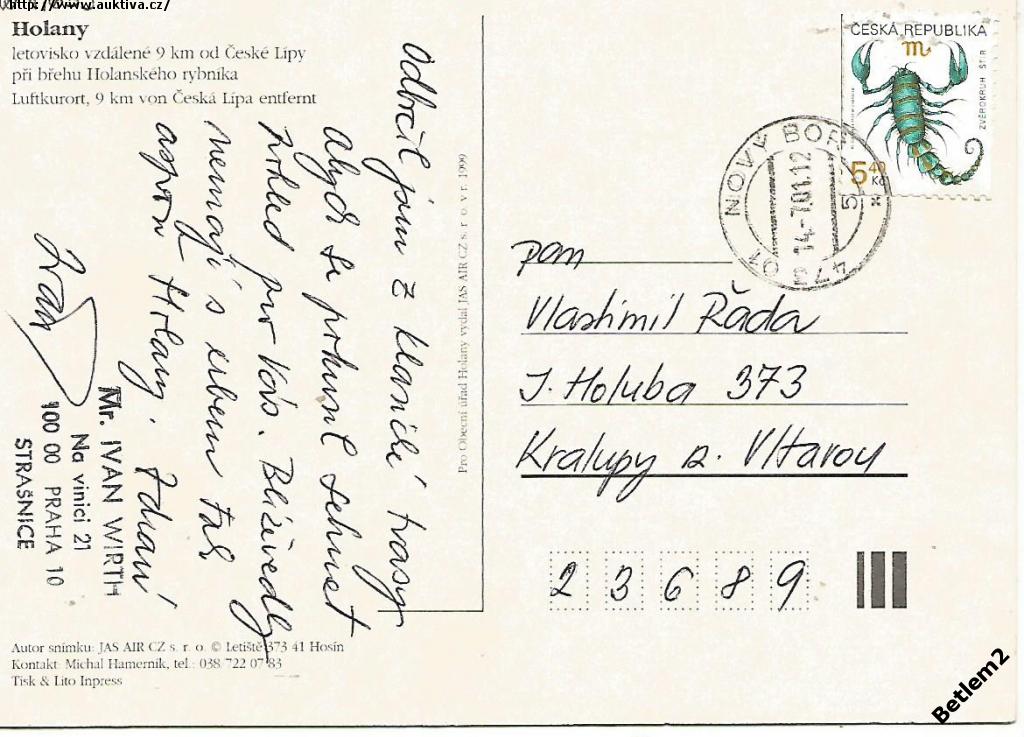 http://www.auktiva.cz/
Holany
letovisko vzdálené 9 km od České Lípy
při břehu Holanského rybníka
Luftkurort, 9 km von Česká Lípa entfernt
Odbočil jsem z klasické trasy
abych se
pohled pro Vás. Blíževedly
nemají s sebou tak
aspoň Holany. Zdraví
Mr. IVAN WIRTH
Na vinici 21
100 00 PRAHA 10
STRAŠNICE
Pro Obecní úřad Holany vydal JAS AIR CZ s. r. o. v r. 1999
ČESKÁ REPUBLIKA
ZVĚROKRUH ŠTÍR
5,40
Kč
NOVÝ BOR
14.-7.01.12
473 01
pan
Vlastimil Řáda
J. Holuba 373
Kralupy n. Vltavou
23689
Autor snímku: JAS AIR CZ s. r. o. © Letiště 373 41 Hosín
Kontakt: Michal Hamerník, tel.: 038 722 07 83
Tisk & Lito Inpress
Betlem2